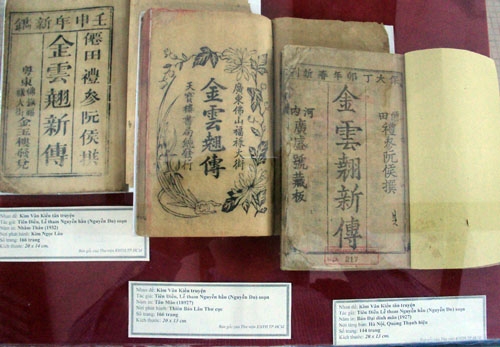 壬申年新鐫
僊田禮參阮侯撰
金雲翹新傳
廣東佛山福祿大街
金雲翹傳
天寶樓書局總發行
大丁卯年春新刊
僊田禮參阮侯撰
金雲翹新傳
河內
廣盛號藏板
317
Nhan đề: Kim Vân Kiều tân truyện
Tác giả: Tiên Điền, Lễ tham Nguyễn hầu (Nguyễn Du) soạn
Năm in: Nhâm Thân (1932)
Nơi phát hành: Kim Ngọc Lâu
Số trang: 166 trang
Kích thước: 20 x 14 cm.
Nhan đề: Kim Vân Kiều truyện
Tác giả: Tiên Điền, Lễ tham Nguyễn hầu (Nguyễn Du) soạn
Năm in: Tân Mão (1891?)
Nơi phát hành: Thiên Bảo Lâu Thư cục
Số trang: 160 trang
Kích thước: 20 x 13 cm.
Nhan đề: Kim Vân Kiều tân truyện
Tác giả: Tiên Điền, Lễ tham Nguyễn hầu (Nguyễn Du) soạn
Năm in: Bảo Đại đinh mão (1927)
Nơi tàng bản: Hà Nội, Quảng Thạnh hiệu
Số trang: 144 trang
Kích thước: 20 x 13 cm.